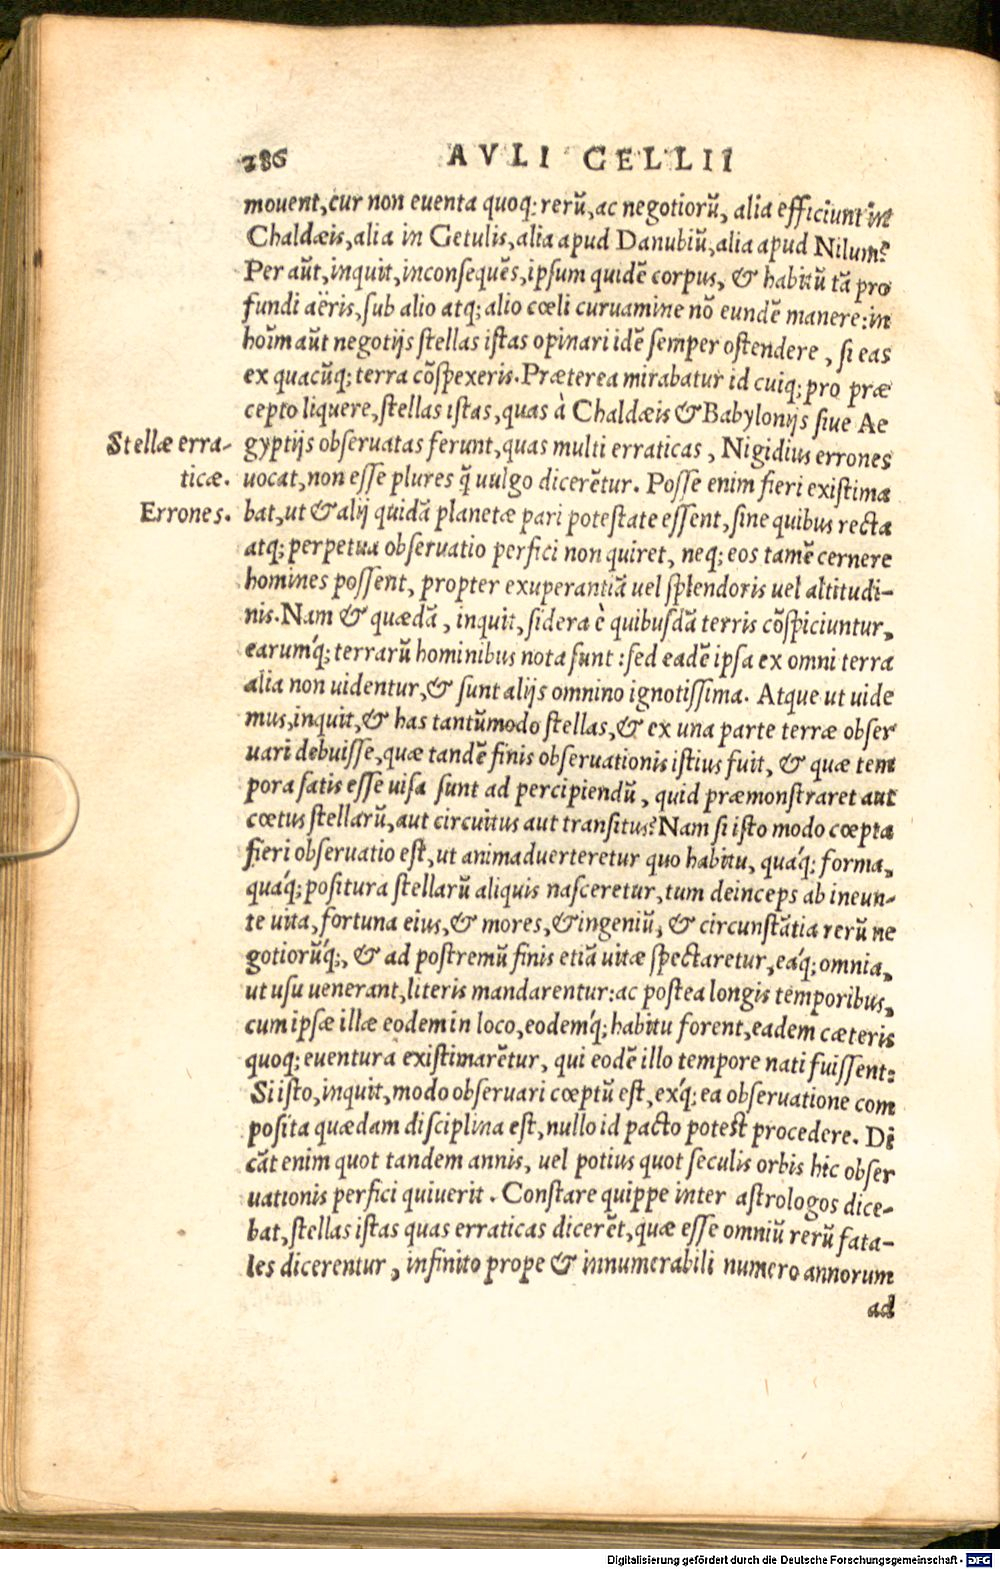 286 AVLI GELLII
mouent, cur non euenta quoq; rerũ, ac negotiorũ, alia efficiunt in
Chaldæis, alia in Getulis, alia apud Danubiũ, alia apud Nilum?
Per aũt, inquit, inconsequẽs, ipsum quidẽ corpus, & habitũ tã pro
fundi aëris, sub alio atq; alio cœli curuamine nõ eundẽ manere: in
hoĩm aũt negotijs stellas istas opinari idẽ semper ostendere, si eas
ex quacũq; terra cõspexeris. Præterea mirabatur id cuiq; pro præ
cepto liquere, stellas istas, quas à Chaldæis & Babylonijs siue Ae
Stellæ erra- gyptijs obseruatas ferunt, quas multi erraticas, Nigidius errones
ticæ. uocat, non esse plures q̃ uulgo dicerẽtur. Posse enim fieri existima
Errones. bat, ut & alij quidã planetæ pari potestate essent, sine quibus recta
atq; perpetua obseruatio perfici non quiret, neq; eos tamẽ cernere
homines possent, propter exuperantiã uel splendoris uel altitudi-
nis. Nam & quædã, inquit, sidera è quibusdã terris cõspiciuntur,
earumq́; terrarũ hominibus nota sunt: sed eadẽ ipsa ex omni terra
alia non uidentur, & sunt alijs omnino ignotissima. Atque ut uide
mus, inquit, & has tantũmodo stellas, & ex una parte terræ obser
uari debuisse, quæ tandẽ finis obseruationis istius fuit, & quæ tem
pora satis esse uisa sunt ad percipiendũ, quid præmonstraret aut
cœtus stellarũ, aut circuitus aut transitus? Nam si isto modo cœpta
fieri obseruatio est, ut animaduerteretur quo habitu, quáq; forma,
quáq; positura stellarũ aliquis nasceretur, tum deinceps ab ineun-
te uita, fortuna eius, & mores, & ingeniũ, & circunstãtia rerũ ne
gotiorũq́;, & ad postremũ finis etiã uitæ spectaretur, eáq; omnia,
ut usu uenerant, literis mandarentur: ac postea longis temporibus,
cum ipsæ illæ eodem in loco, eodemq́; habitu forent, eadem cæteris
quoq; euentura existimarẽtur, qui eodẽ illo tempore nati fuissent:
Si isto, inquit, modo obseruari cœptũ est, exq́; ea obseruatione com
posita quædam disciplina est, nullo id pacto potest procedere. Di
cãt enim quot tandem annis, uel potius quot seculis orbis hic obser
uationis perfici quiuerit. Constare quippe inter astrologos dice-
bat, stellas istas quas erraticas dicerẽt, quæ esse omniũ rerũ fata-
les dicerentur, infinito prope & innumerabili numero annorum
ad
Digitalisierung gefördert durch die Deutsche Forschungsgemeinschaft - DFG